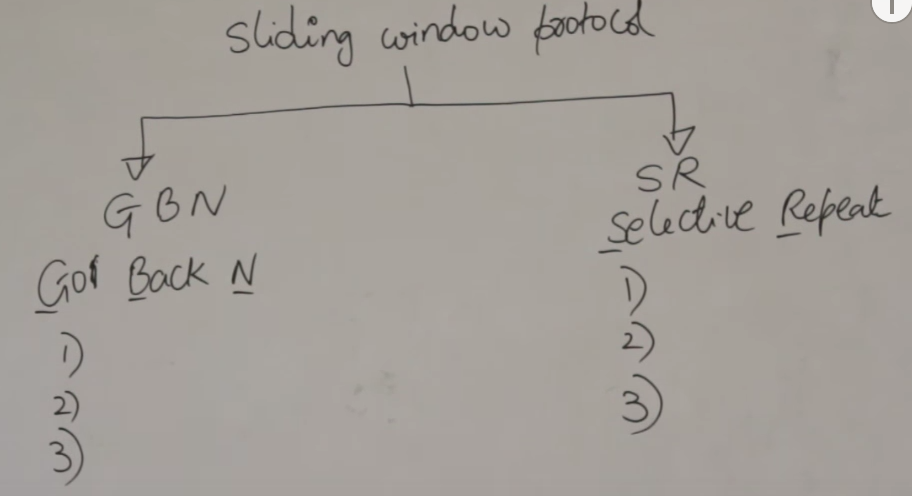 Sliding window protocol
GBN
Go Back N
1)
2)
3)
SR
Selective Repeat
1)
2)
3)